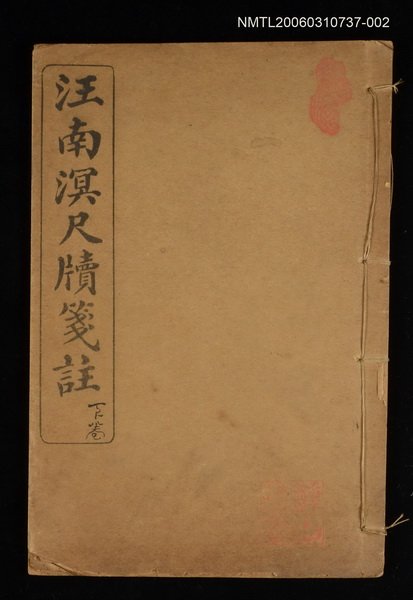 NMTL20060310737-002
汪南溟尺牘箋註
下卷